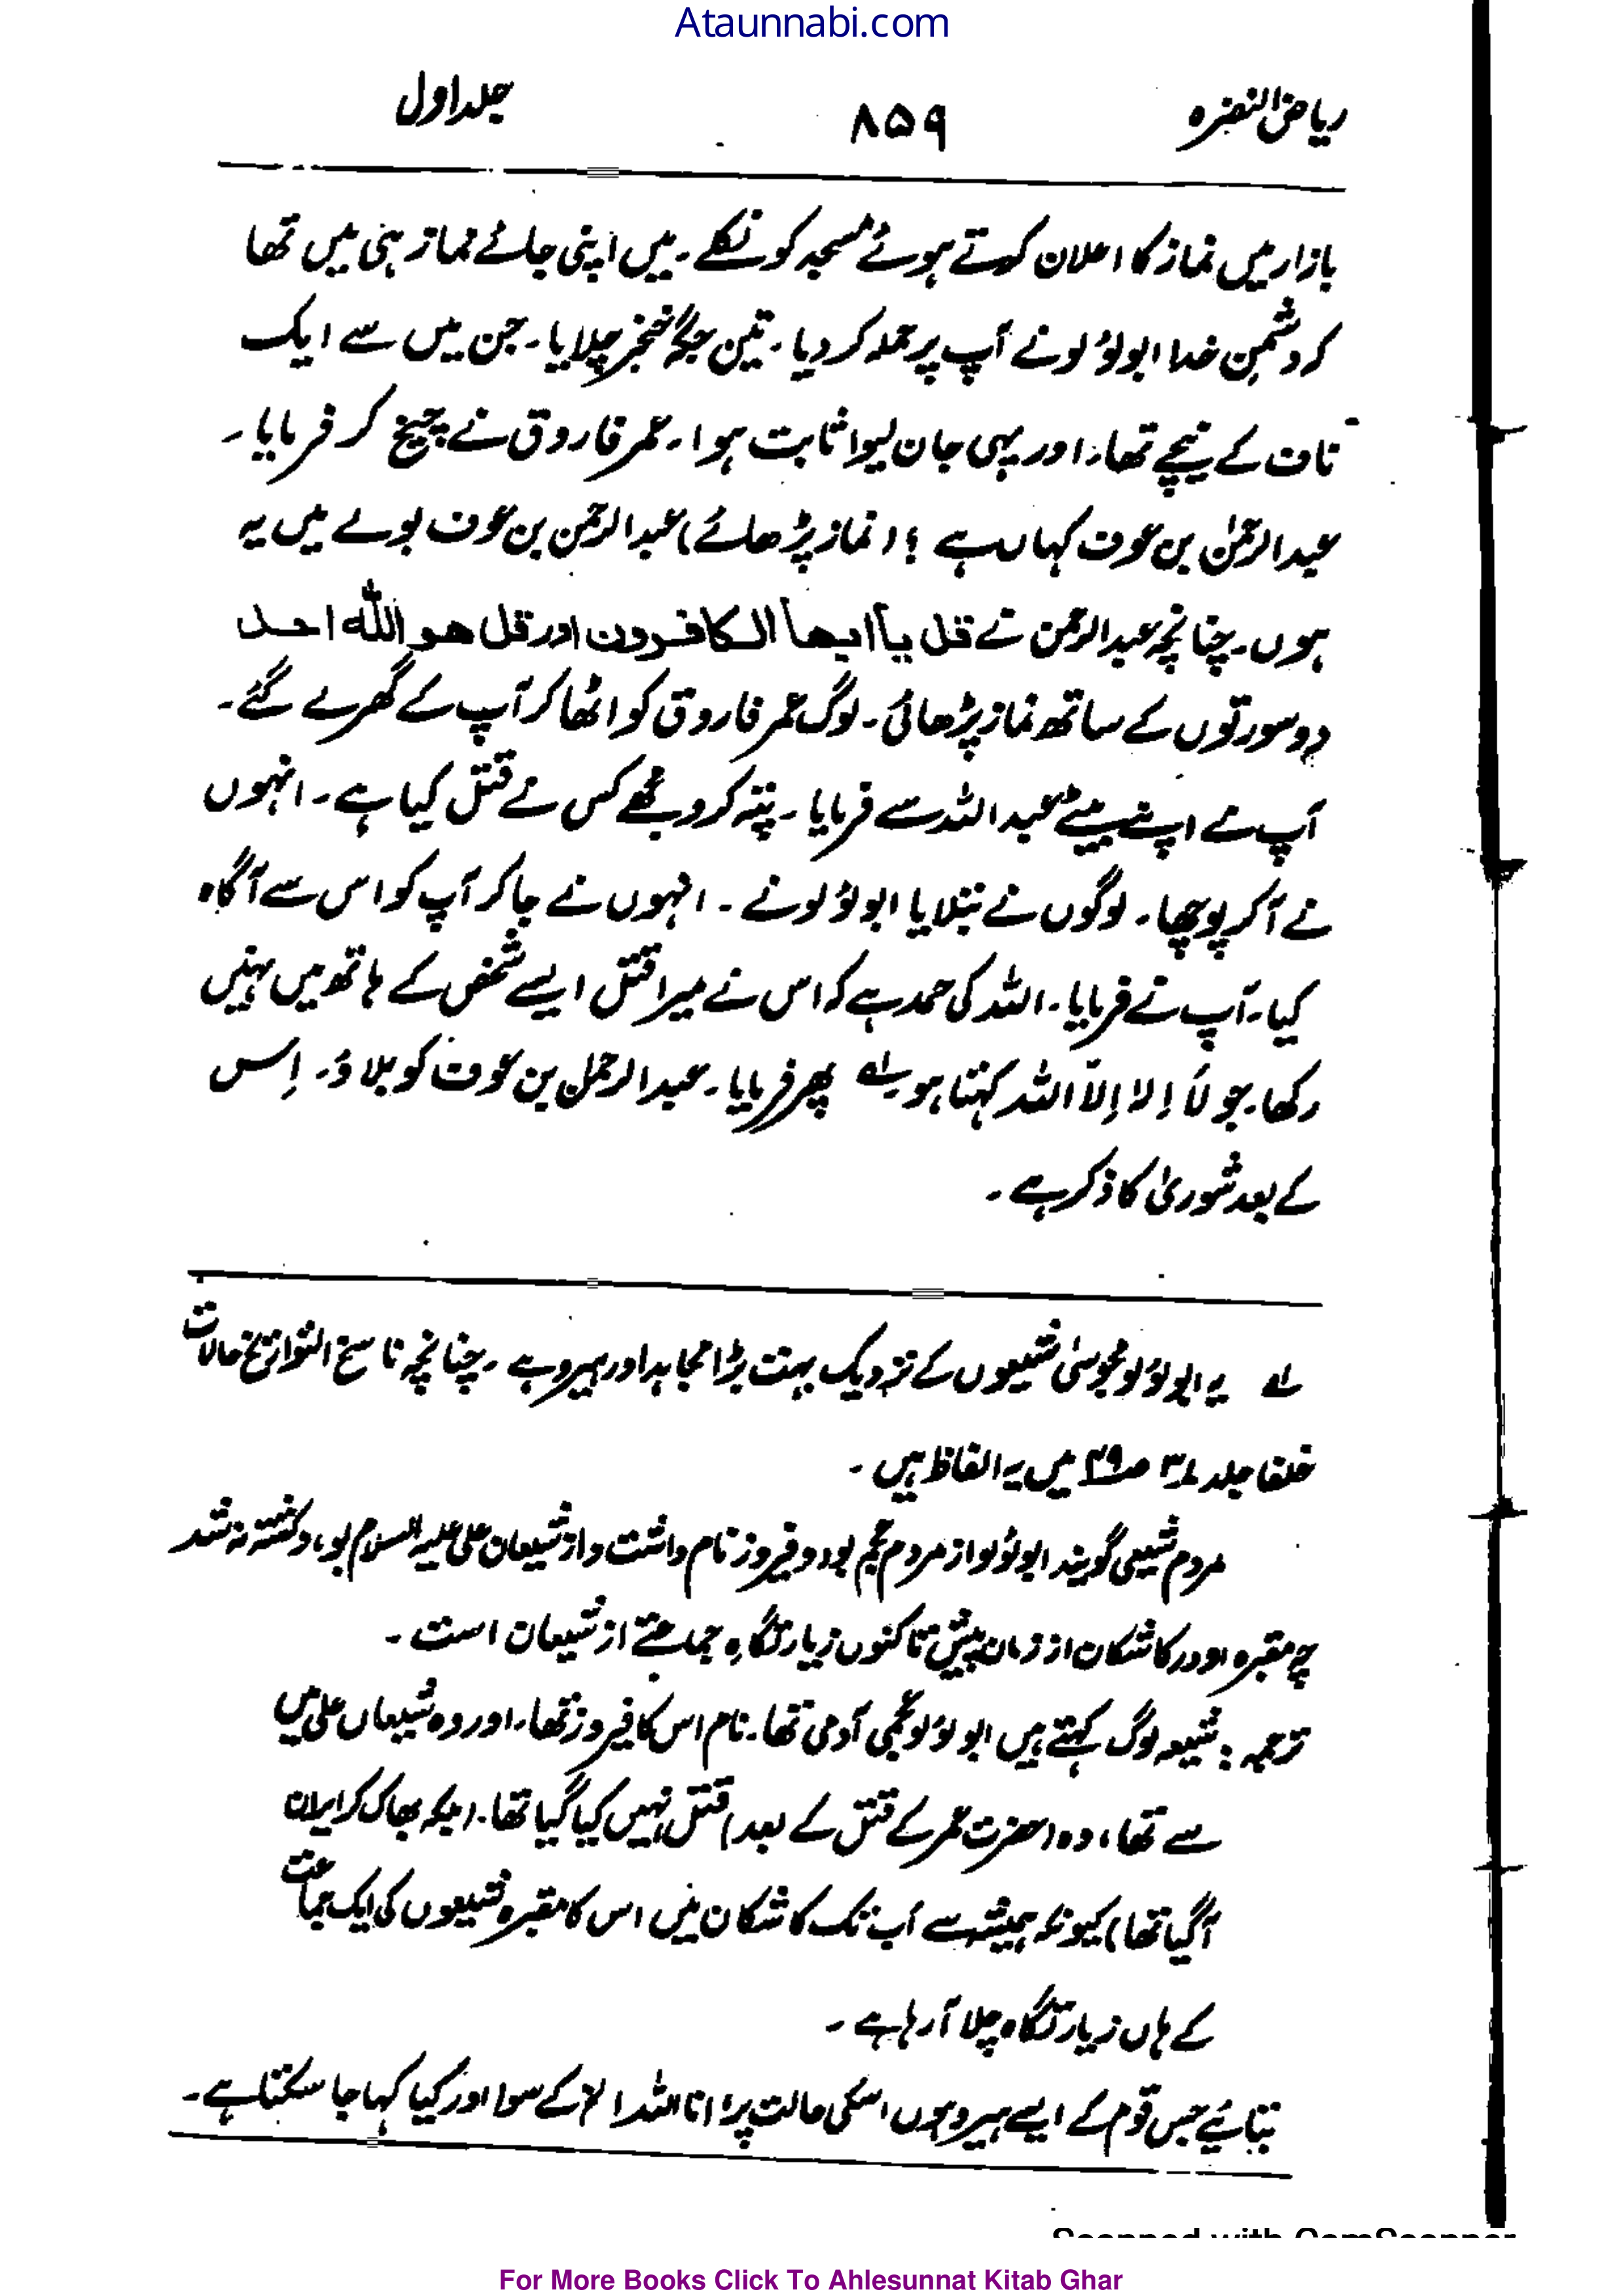 Ataunnabi.com
ریاض النضرہ ۸۵۹ جلد اول
بازار میں نماز کا اعلان کرتے ہوئے مسجد کو نکلے۔ میں اپنی جائے نماز ہی میں تھا
کہ دشمن خدا ابو لؤلو نے آپ پر حملہ کر دیا۔ تین جگہ خنجر چلایا۔ جن میں سے ایک
ناف کے نیچے تھا۔ اور یہی جان لیوا ثابت ہوا۔ عمر فاروق نے چیخ کر فرمایا۔
عبدالرحمٰن بن عوف کہاں ہے ؟ (نماز پڑھائے) عبدالرحمٰن بن عوف بولے میں یہ
ہوں۔ چنانچہ عبدالرحمن نے قل یا ایھا الکافرون اور قل ھو اللہ احد
دو سورتوں کے ساتھ نماز پڑھائی۔ لوگ عمر فاروق کو اٹھا کر آپ کے گھر لے گئے۔
آپ نے اپنے بیٹے عبداللہ سے فرمایا۔ پتہ کرو مجھے کس نے قتل کیا ہے۔ انہوں
نے آکر پوچھا۔ لوگوں نے بتلایا ابو لؤلو نے۔ انہوں نے جا کر آپ کو اس سے آگاہ
کیا۔ آپ نے فرمایا۔ اللہ کی حمد ہے کہ اس نے میرا قتل ایسے شخص کے ہاتھ میں نہیں
رکھا۔ جو لَا اِلا اِلّا اللہ کہتا ہو۔ لے پھر فرمایا۔ عبدالرحمٰن بن عوف کو بلاؤ۔ اِس
کے بعد شوریٰ کا ذکر ہے۔
لے یہ ابو لؤلو مجوسی شیعوں کے نزدیک بہت بڑا مجاہد اور ہیرو ہے۔ چنانچہ ناسخ التواریخ حالات
خلفا جلد ۳ ص۴۹ میں یہ الفاظ ہیں۔
مردم شیعی گویند ابو لؤلو از مردم عجم بود و فیروز نام داشت و از شیعیان علی علیہ السلام بود، و کشتہ نہ شد
چہ مقبرہ او در کاشکان از زمان پیش تا کنوں زیارتگاہِ جماعتے از شیعان است۔
ترجمہ : شیعہ لوگ کہتے ہیں ابو لؤلو عجمی آدمی تھا۔ نام اس کا فیروز تھا۔ اور وہ شیعاں علی میں
سے تھا، وہ (حضرت عمر کے قتل کے بعد) قتل نہیں کیا گیا تھا۔ (بلکہ بھاگ کر ایران
آگیا تھا) کیونکہ ہمیشہ سے اب تک کاشکان میں اس کا مقبرہ شیعوں کی ایک جماعت
کے ہاں زیارتگاہ چلا آ رہا ہے۔
بتائیے جس قوم کے ایسے ہیرو ہوں اسکی حالت پر انا للہ الخ کے سوا اور کیا کہا جا سکتا ہے۔
For More Books Click To Ahlesunnat Kitab Ghar